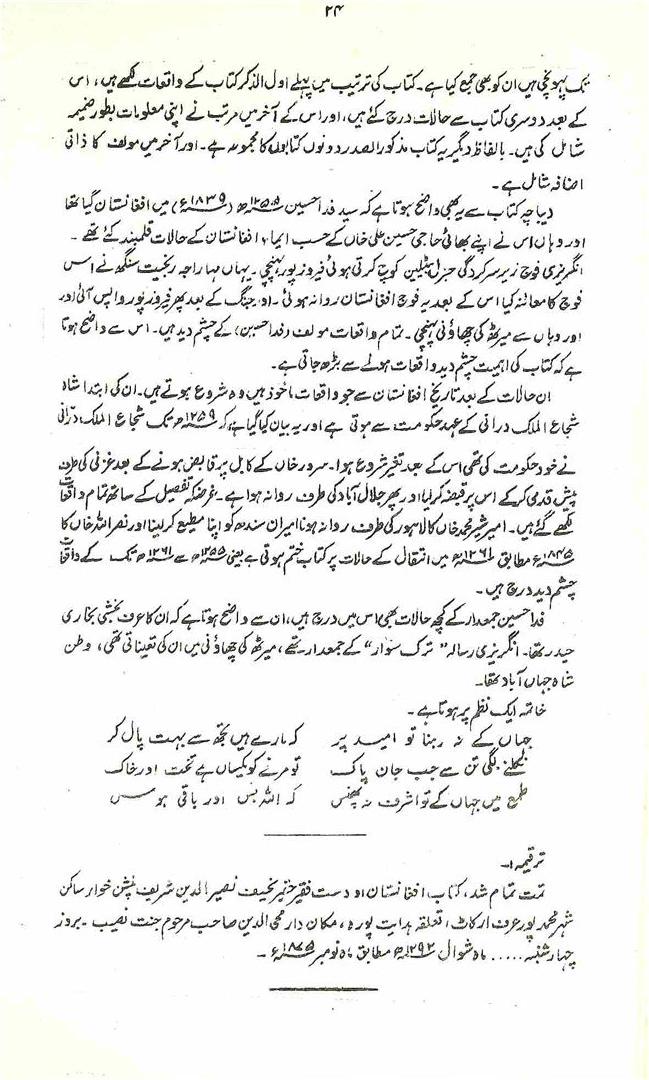 ۲۴
تک پہونچی ہیں ان کو بھی جمع کیا ہے۔ کتاب کی ترتیب میں پہلے اول الذکر کتاب کے واقعات لکھے ہیں، اس
کے بعد دوسری کتاب سے حالات درج کئے ہیں، اور اس کے آخر میں مرتب نے اپنی معلومات بطور ضمیمہ
شامل کی ہیں۔ بالفاظ دیگر یہ کتاب مذکور الصدر دونوں کتابوں کا مجموعہ ہے۔ اور آخر میں مولف کا ذاتی
اضافہ شامل ہے۔
دیباچہ کتاب سے یہ بھی واضح ہوتا ہے کہ سید فدا حسین ۱۲۵۵ھ (۱۸۳۹ء) میں افغانستان گیا تھا
اور وہاں اس نے اپنے بھائی حاجی حسین علی خاں کے حسب ایماء افغانستان کے حالات قلمبند کئے تھے۔
انگریزی فوج زیر سرکردگی جنرل کوچ کرتی ہوئی فیروز پور پہنچی۔ یہاں مہاراجہ رنجیت سنگھ نے اس
فوج کا معائنہ کیا اس کے بعد یہ فوج افغانستان روانہ ہوئی۔ اور جنگ کے بعد پھر فیروز پور واپس آئی اور
اور وہاں سے میرٹھ کی چھاؤنی پہنچی۔ تمام واقعات مولف (فدا حسین) کے چشم دید ہیں۔ اس سے واضح ہوتا
ہے کہ کتاب کی اہمیت چشم دید واقعات ہونے سے بڑھ جاتی ہے۔
ان حالات کے بعد تاریخ افغانستان سے جو واقعات ماخوذ ہیں وہ شروع ہوتے ہیں۔ ان کی ابتدا شاہ
شجاع الملک درانی کے عہد حکومت سے ہوتی ہے اور یہ بیان کیا گیا ہے، کہ ۱۲۵۹ھ تک شجاع الملک درانی
نے خود حکومت کی تھی اس کے بعد تغیر شروع ہوا۔ سرور خاں کے کابل پر قابض ہونے کے بعد غزنی کی طرف
پیش قدمی کر کے اس پر قبضہ کر لیا اور پھر جلال آباد کی طرف روانہ ہوا ہے۔ غرضکہ تفصیل کے ساتھ تمام واقعات
لکھے گئے ہیں۔ امیر شیر محمد خاں کا لاہور کی طرف روانہ ہونا ایران سندھ کو اپنا مطیع کر لینا اور نصر اللہ خاں کا
۱۸۴۵ء مطابق ۱۲۶۱ھ میں انتقال کے حالات پر کتاب ختم ہوتی ہے یعنی ۱۲۵۵ھ سے ۱۲۶۱ھ تک کے واقعات
چشم دید درج ہیں۔
فدا حسین جمعدار کے کچھ حالات بھی اس میں درج ہیں، ان سے واضح ہوتا ہے کہ ان کا عرف بخشی بخاری
حیدر تھا۔ انگریزی رسالہ "ترک سوار" کے جمعدار تھے، میرٹھ کی چھاؤنی میں ان کی تعیناتی تھی، وطن
شاہ جہاں آباد تھا۔
خاتمہ ایک نظم پر ہوتا ہے۔
جہاں کے نہ رہنا تو امید پر کہ مارے ہیں تجھ سے بہت پال کر
نکلنے لگی تن سے جب جان پاک تو مرنے کو یکساں ہے تخت اور خاک
طمع میں جہاں کے تو اشرف نہ پھنس کہ اللہ بس اور باقی ہوس
ترقیمہ:۔
تمت تمام شد، کتاب افغانستان از دست فقیر حقیر نحیف نصیر الدین شریف پنشن خوار ساکن
شہر محمد پور عرف ارکاٹ، تعلقہ ہدایت پورہ، مکان دار محی الدین صاحب مرحوم جنت نصیب۔ بروز
چہار شنبہ ..... ماہ شوال ۱۲۹۲ھ مطابق ماہ نومبر ۱۸۷۵ء۔